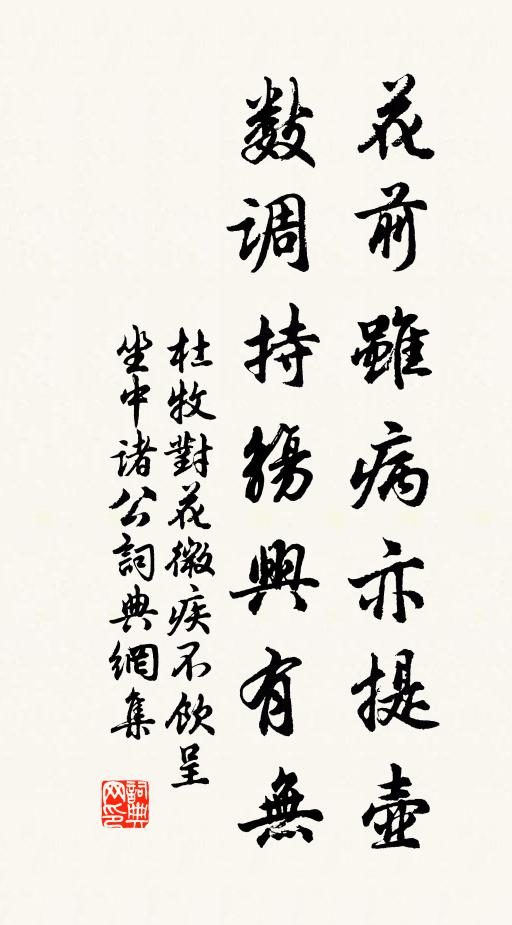 花前雖病亦提壺
數調持觴興有無
杜牧對花微疾不飲呈
坐中諸公詞典網集
詞典网印